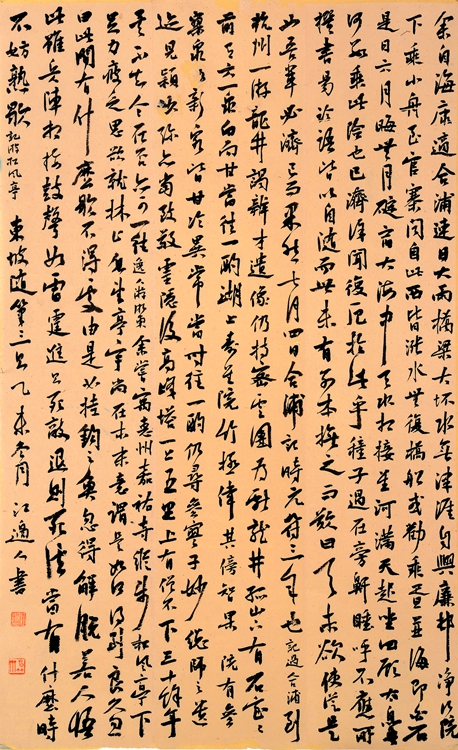 余自海康適合浦連日大雨橋梁大坏水無津涯自興廉邨淨行院
下乘小舟至官寨聞自此西皆漲水無復橋船或勸乘蜑並海即白石
是日六月晦無月碇宿大海中天水相接星河滿天起坐四顧太息吾
何數乘此險也已濟徐聞復厄於此乎稚子過在旁鼾睡呼不應所
撰書易論語皆以自隨而世未有別本撫之而歎曰天未欲使從是
也吾輩必濟已而果然七月四日合浦記時元符三年也 記過合浦 到
杭州一游龍井謁辯才遺像仍持密雲團為獻龍井孤山下有石室室
前有六一泉白而甘當往一酌湖上壽星院竹極偉其傍智果院有參
寥泉及新泉皆甘冷異常當時往一酌仍尋參寥子妙總師之遺
迹見穎沙彌亦當致敬靈隱後高峰塔一上五里上有僧不下三十餘年
矣不知今在否亦可一往 逸人游浙東 余嘗寓惠州嘉祐寺縱步松風亭下
足力疲乏思欲就林止息望亭宇尚在木末意謂是如何得到良久忽
曰此間有什麼歇不得處由是如挂鉤之魚忽得解脫若人悟
此雖兵陣相接鼓聲如雷霆進則死敵退則死法當有什麼時
不妨熟歇 記游松風亭 東坡隨筆三則乙未冬月 江邊人書